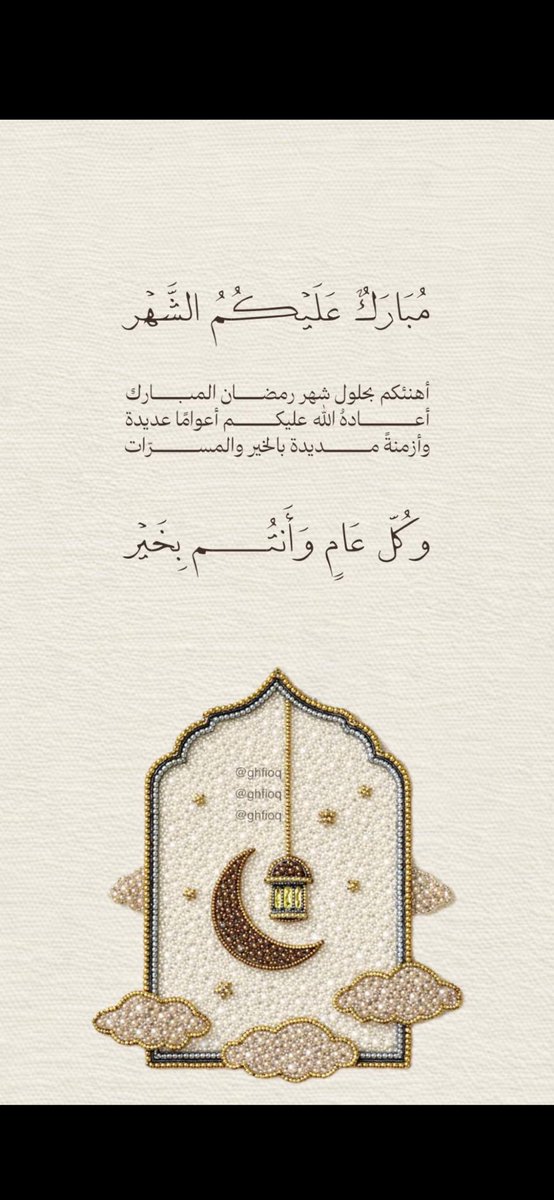 مُبَارَكٌ عَلَيْكُمُ الشَّهْر
أهنئكم بحلول شهر رمضان المبارك
أعادهُ الله عليكم أعوامًا عديدة
وأزمنةً مديدة بالخير والمسرّات
وكُلّ عَامٍ وَأَنتُم بِخَيْر
@ghfioq
@ghfioq
@ghfioq